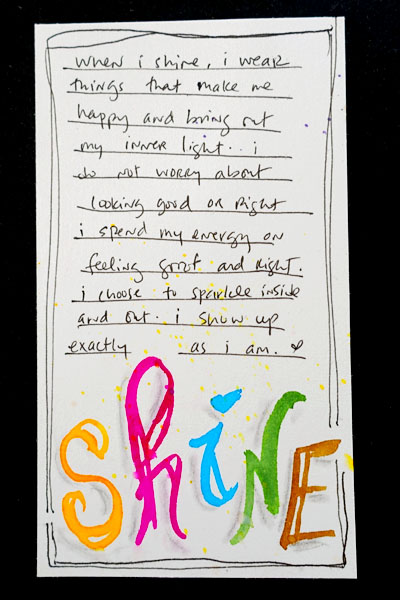 when i shine, i wear
things that make me
happy and bring out
my inner light.. i
do not worry about
looking good or right
i spend my energy on
feeling great and right.
i choose to sparkle inside
and out. i show up
exactly as i am.
ShiNE